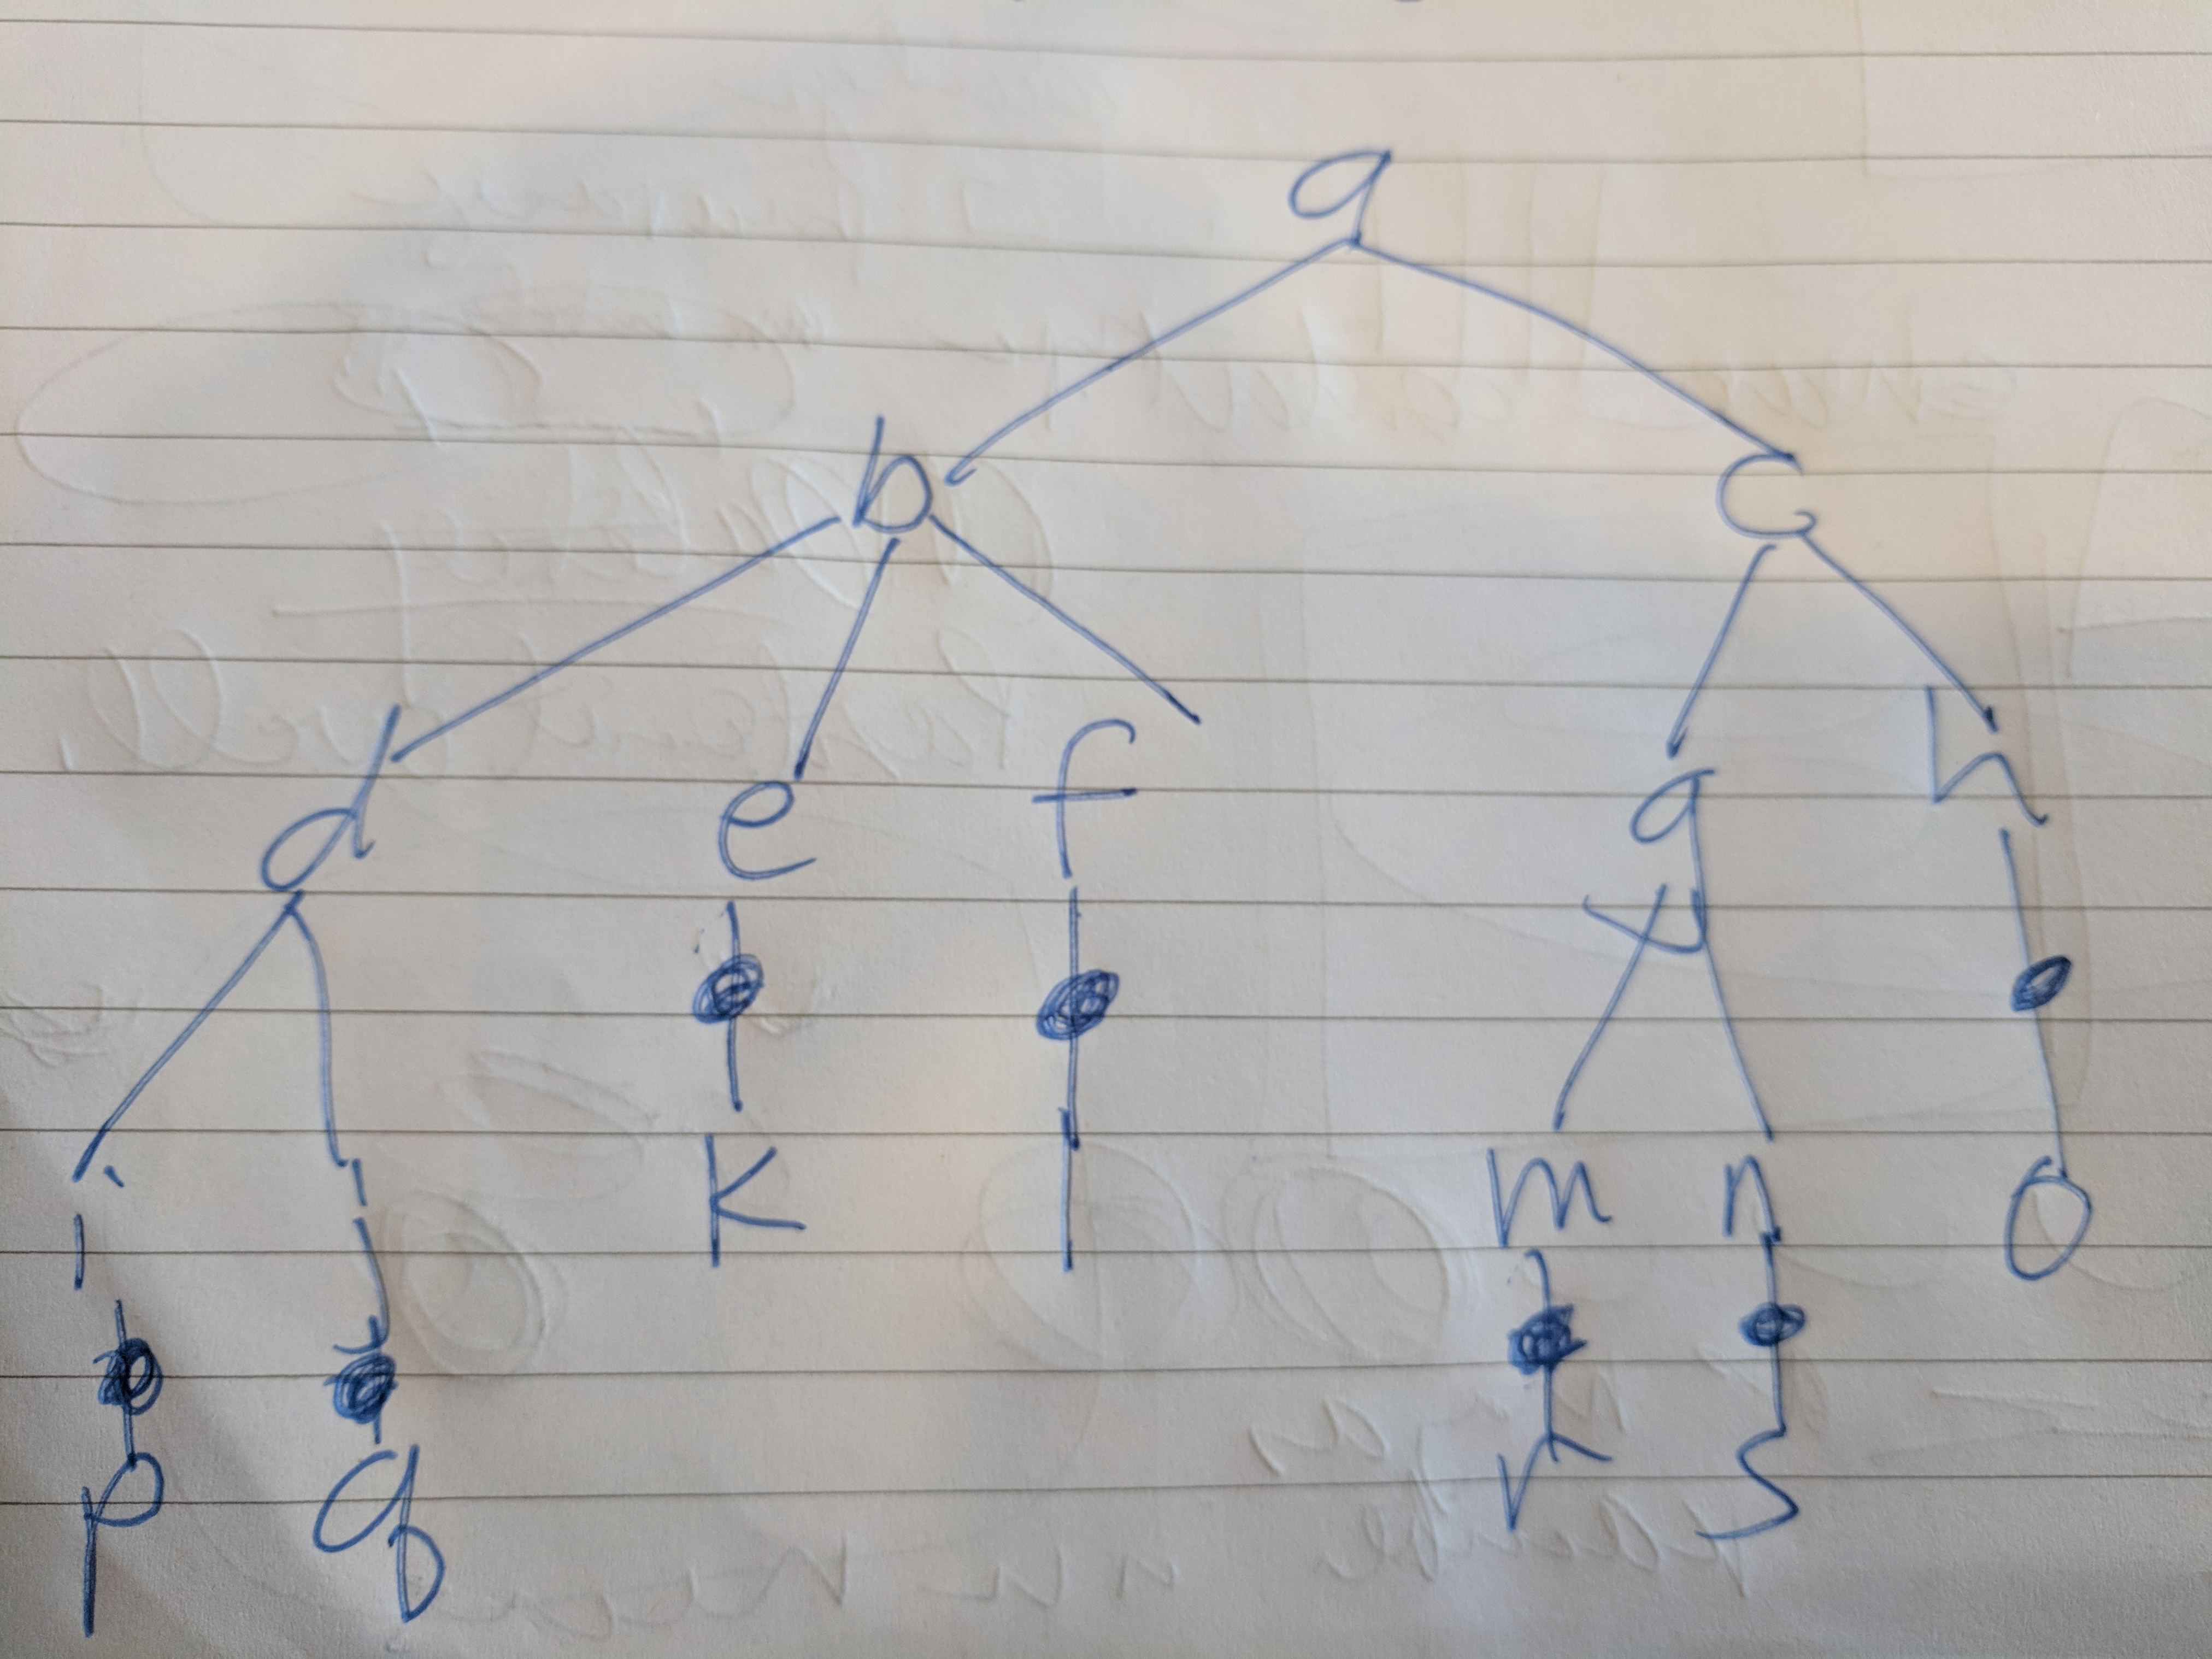 a
b c
d e f g h
i j k l m n o
p q r s